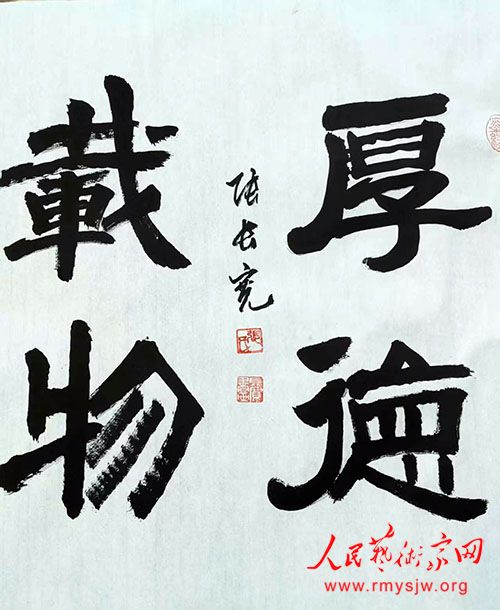 厚德
載物
张长宽
張氏
人民藝術家网
www.rmysjw.org